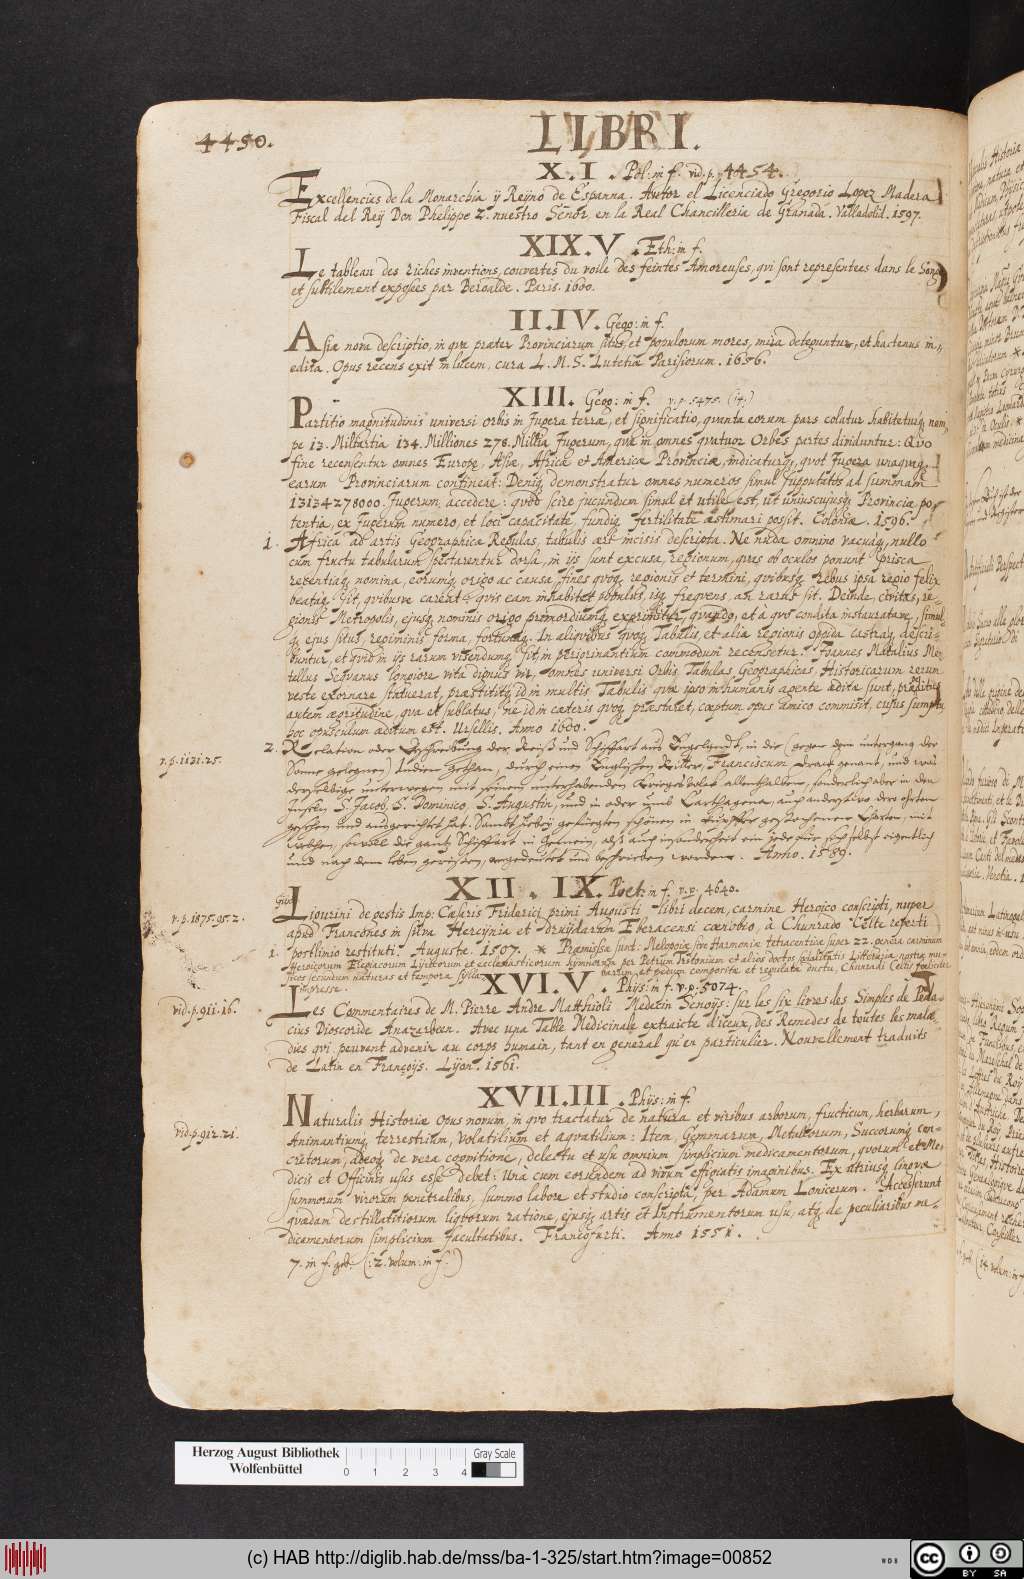 4450.
LIBRI.
X.I. Pol: in f. vid. p. 4454.
Excellencias de la Monarchia ÿ Reÿno de Espanna. Autor el Licenciado Gregorio Lopez Madera
Fiscal del Reÿ Don Phelippe 2. nuestro Señor, en la Real Chancilleria de Granada. Valladolid. 1597.
XIX.V. Eth: in f.
Le tableau des riches inventions, couvertes du voile des feintes Amoreuses, qvi sont representees dans le Songe
et subtilement exposees par Beroalde. Paris. 1600.
II.IV. Geog: in f.
Asiæ nova descriptio, in qva præter Provinciarum situs, et populorum mores, mira deteguntur, et hactenus in-
edita. Opus recens exit in lucem, cura L. M. S. Lutetiæ Parisiorum. 1656.
XIII. Geog: in f. v.p. 5475.
Partitio magnitudinis universi orbis in Jugera terræ, et significatio, qvanta eorum pars colatur habiteturq, nem-
pe 13. Millsertia 134. Milliones 278. Millia Jugerum, qvæ in omnes qvatuor Orbes partes dividuntur: Qvo
fine recensentur omnes Europæ, Asiæ, Africæ et Americæ Provinciæ, indicaturq, qvot Jugera unaqvæq
earum Provinciarum contineat: Deniq demonstratur omnes numeros simul supputatos ad summam
13134278000. Jugerum accedere: qvod scire jucundum simul et utile est, ut uniuscujusq Provinciæ po-
tentia, ex Jugerum numero, et loci capacitate, fundiq fertilitate æstimari possit. Coloniæ. 1596.
1. Africa ad artis Geographicæ Regulas, tabulis ære incisis descripta. Ne nuda omnino vacuaq, nullo
cum fructu tabularum spectarentur dorsa, in ijs sunt excusa, regionum, qvas ob oculos ponunt prisca
recentiaq, nomina, eorumq, origo ac causa, fines qvoq, regionis et termini, qvibusq, rebus ipsa regio felix
beataq sit, qvibusve careat, qvis eam inhabitet populus, isq freqvens, an rarus sit. Deinde, civitas, re-
gionis Metropolis, ejusq, nominis origo primordiumq exprimitur, qvando, et à qvo condita instauratave, simul-
q, ejus situs, regiminis forma, fortunaq. In aliqvibus qvoq Tabulis, et alia regionis oppida castraq descri-
buntur, et qvid in ijs rarum visendumq sit, in peregrinantium commodum recensetur. Joannes Matalius Me-
tellus Seqvanus longiore vita dignus vir, omnes universi Orbis Tabulas Geographicas, Historicarum rerum
veste exornare statuerat, præstititq, id in multis Tabulis qvæ ipso in humanis agente æditæ sunt, præpeditus
autem ægritudine, qva et sublatus, ne id in cæteris qvoq præstaret, cœptum opus amico commisit, cujus sumptu
hoc opusculum æditum est. Ursellis. Anno 1600.
v.p. 1131.25.
2. Relation oder Beschreibung der Reiß und Schiffart auß Engelandt, in die (gegen dem untergang der
Sonne gelegnen) Indien gethan, durch einen Englischen Ritter, Franciscum Drack genant, und was
derselbige underwegen mit seinem unterhabenden Kriegsvolck allenthalben, sonderlich aber in den
Inseln S. Jacob, S. Dominico, S. Augustin, und in oder umb Carthagena, auch anderstwo der ohrten
gesehen und außgerichtet hat. Sambt hebey gefüegten schönen in Kupffer gestochenen Charten, mit
welchen, sowoll die gantz Schiffart in gemein, alß auch insonderheit ein jede für sich selbst eigentlich
und nach dem leben gerissen, angedeutet und beschrieben worden. Anno. 1589.
XII. IX. Poet: in f. v.p. 4640.
v.p. 1875.95.2.
Ligurini de gestis Imp: Cæsaris Friderici primi Augusti libri decem, carmine Heroico conscripti, nuper
apud Francones in silva Hercÿnia et Druÿdarum Eberacensi cœnobio, à Chunrado Celte reperti
postliminio restituti. Augustæ. 1507. * Præmissa sunt: Melopoiæ sive Harmoniæ tetracenticæ super 22. genera carminum
1. Heroicorum Elegiacorum Lÿricorum et ecclesiasticorum hÿmnorum per Petrum Tritonium et alios doctos sodalitatis Litterariæ nostræ mu-
sicos secundum naturas et tempora syllabarum, et pedum compositæ et regulatæ ductu Chunradi Celtis fœliciter
impresse.
XVI.V. Phÿs: in f. v.p. 5074.
vid. p. 911.16.
Les Commentaires de M. Pierre Andre Matthioli Medecin Senoÿs: sur les six livres des Simples de Peda-
cius Dioscoride Anazarbeen. Avec una Table Medicinale extraicte diceux, des Remedes de toutes les mala-
dies qvi peuvent advenir au corps humain, tant en general qu'en particulier. Nouvellement traduits
de Latin en Françoÿs. Lÿon. 1561.
XVII.III. Phÿs: in f.
vid. p. 912.21.
Naturalis Historiæ Opus novum, in qvo tractatur de natura et viribus arborum, fructicum, herbarum,
Animantiumq terrestrium, Volatilium et aqvatilium: Item, Gemmarum, Metallorum, Succorumq con-
cretorum, adeoq de vera cognitione, delectu et usu omnium simplicium medicamentorum, qvorum et Me-
dicis et Officinis usus esse debet: Unà cum eorundem ad vivum effigiatis imaginibus. Ex utriusq linguæ
summorum virorum penetralibus, summo labore et studio conscripta, per Adamum Lonicerum. Accesserunt
qvædam destillatitiorum liqvorum ratione, ejusq artis et Instrumentorum usu, atq de peculiaribus me-
dicamentorum simplicium facultatibus. Francofurti. Anno 1551.
7. in f. geb. (: 2. volum: in f.)
Herzog August Bibliothek
Wolfenbüttel
0 1 2 3 4
Gray Scale
(c) HAB http://diglib.hab.de/mss/ba-1-325/start.htm?image=00852
WDB
CC BY SA